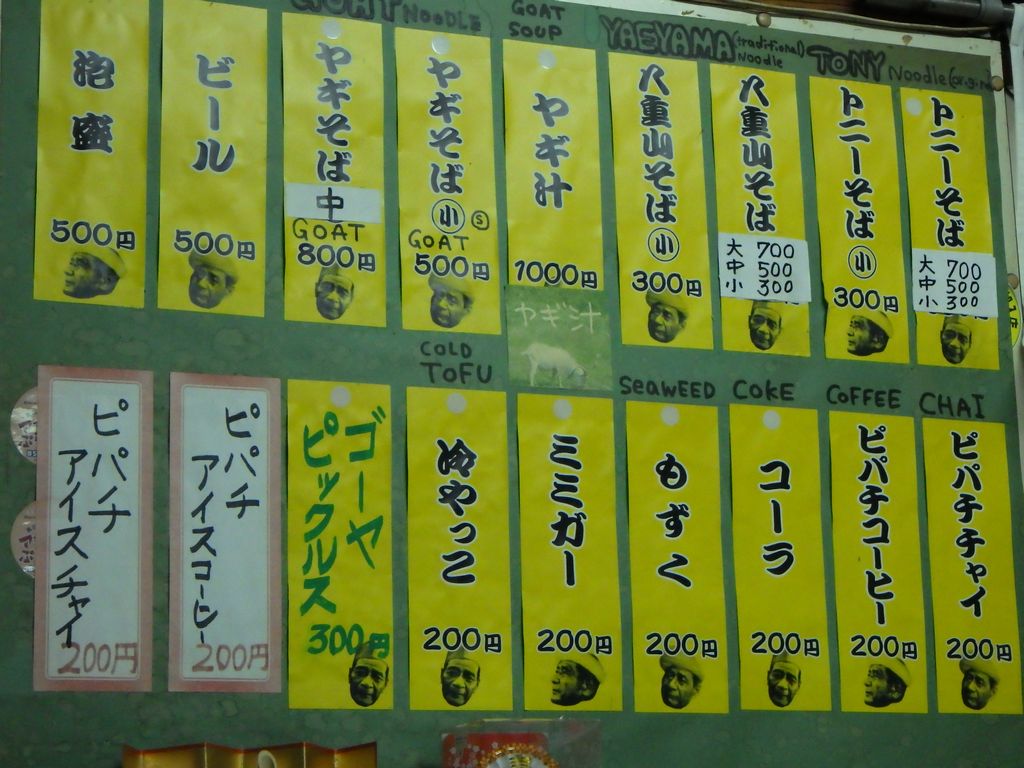 GOAT NOODLE
GOAT
SOUP
YAEYAMA (traditional)
Noodle
TONY Noodle
トニーそば
大 700
中 500
小 300
トニーそば
小
300円
八重山そば
大 700
中 500
小 300
八重山そば
小
300円
ヤギ汁
1000円
ヤギ汁
ヤギそば
小 S
GOAT
500円
ヤギそば
中
GOAT
800円
ビール
500円
泡盛
500円
COLD
TOFU
SEAWEED
COKE
COFFEE
CHAI
ピパチチャイ
200円
ピパチコーヒー
200円
コーラ
200円
もずく
200円
ミミガー
200円
冷やっこ
200円
ゴーヤ
ピックルス
300円
ピパチ
アイスコーヒー
200円
ピパチ
アイスチャイ
200円